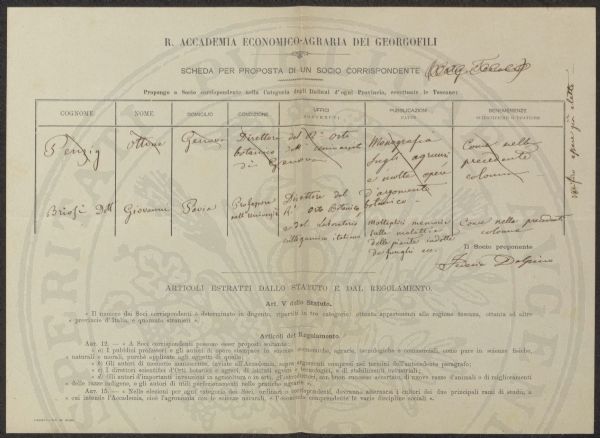 R. ACCADEMIA ECONOMICO-AGRARIA DEI GEORGOFILI
SCHEDA PER PROPOSTA DI UN SOCIO CORRISPONDENTE
Propongo a Socio corrispondente nella Categoria degli Italiani d'ogni Provincia, eccettuate le Toscane:
COGNOME NOME DOMICILIO CONDIZIONE UFFICI PUBBLICAZIONI BENEMERENZE
Penzig Ottone Genova Direttore del R° Orto Monografia Come nella
botanico dell' Università sugli agrumi precedente
di Genova e molte opere colonna
d'argomento
botanico
Briosi Dott Giovanni Pavia Professore Direttore del Moltissimi memorie Come nella precedente
nell'Università R° Orto Botanico sulle malattie colonna
e del Laboratorio delle piante indotte
crittogamico italiano da funghi ecc.
Il Socio proponente
Federico Delpino
ARTICOLI ESTRATTI DALLO STATUTO E DAL REGOLAMENTO.
Art. V dello Statuto.
« Il numero dei Soci corrispondenti è determinato in dugento, ripartiti in tre categorie: ottanta appartenenti alle regione toscana, ottanta ad altre
provincie d'Italia, e quaranta stranieri ».
Articoli del Regolamento.
ART. 12. — « A Soci corrispondenti possono esser proposti soltanto:
« a) I pubblici professori e gli autori di opere stampate in scienze economiche, agrarie, tecnologiche e commerciali, come pure in scienze fisiche,
naturali e morali, purchè applicate agli oggetti di quelle;
« b) Gli autori di memorie manoscritte, inviate all'Accademia, sopra argomenti compresi nei termini dell'antecedente paragrafo;
« c) I direttori scientifici d'Orti botanici e agrari, di istituti agrari e tecnologici, e di stabilimenti industriali;
« d) Gli autori d'importanti invenzioni in agricoltura o in arti, gl'introduttori, con buon successo accertato, di nuove razze d'animali o di miglioramenti
delle razze indigene, e gli autori di utili perfezionamenti nelle pratiche agrarie ».
ART. 15. — « Nelle elezioni per ogni categoria dei Soci, ordinari o corrispondenti, dovranno alternarsi i cultori dei due principali rami di studio, a
cui intende l'Accademia, cioè l'agronomia con le scienze naturali, e l'economia comprendente le varie discipline morali ».